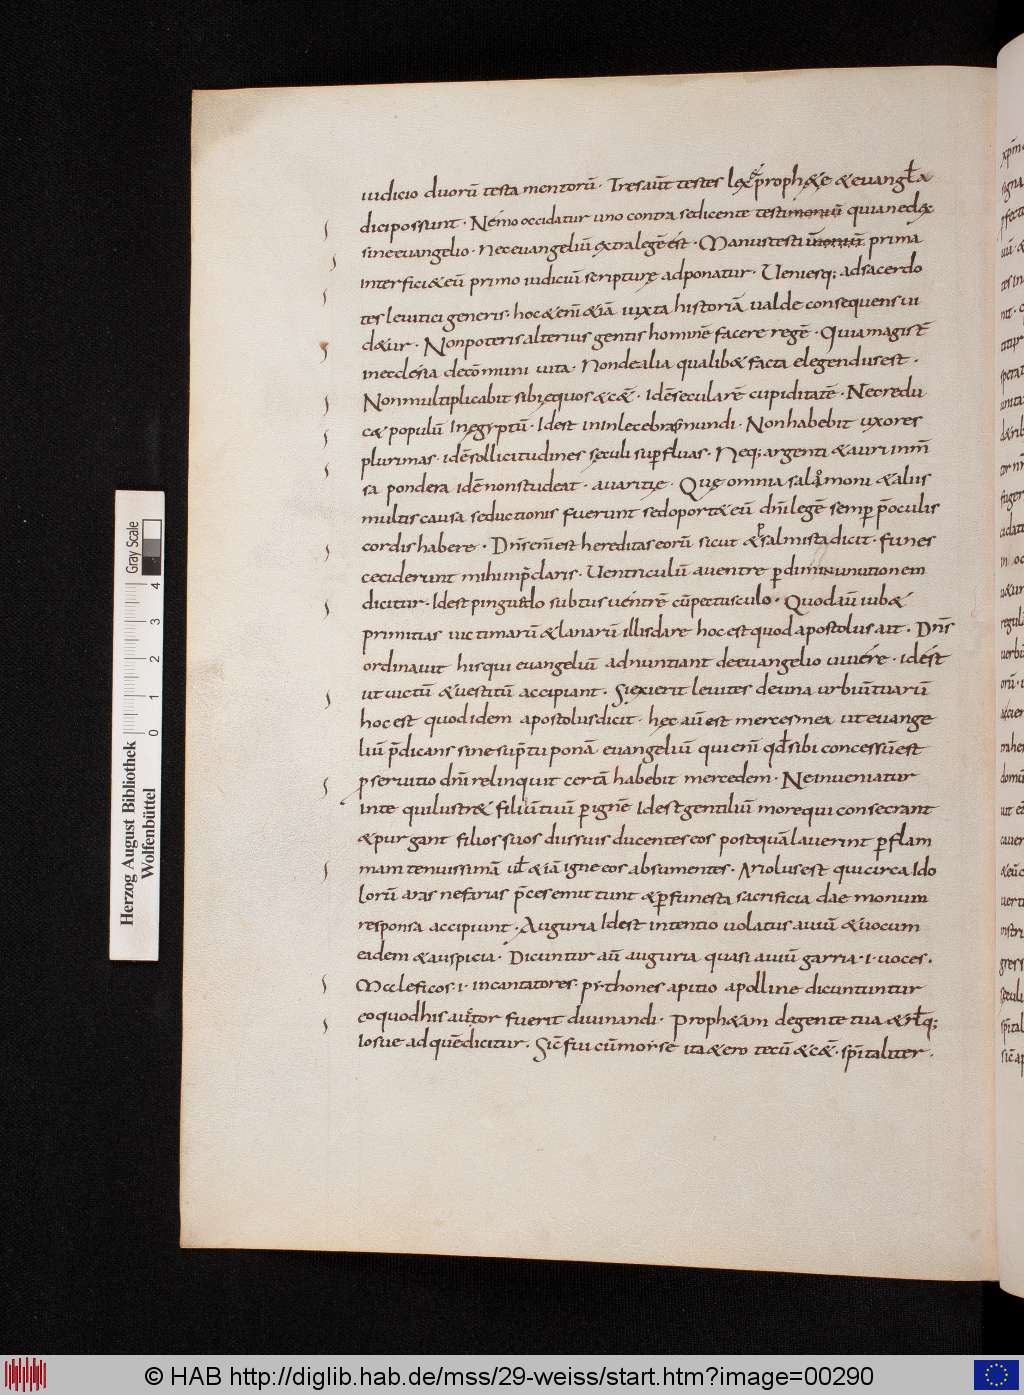 iudicio duorū testamentorū· Tres aūt testes lex & prophetę & evangl̄a
dici possunt· Nemo occidatur uno contra se dicente testimoniū quia nec lex
sine evangelio· nec evangeliū extra legē est· Manus testiūmoniū prima
interficiet eū primo iudiciū scripturę adponatur· Veniesq; ad sacerdo
tes levitici generis· hoc & enī & iā iuxta historiā valde consequens vi
detur· Non poteris alterius gentis hominē facere regē· Quia magist̄
in ecclesia de cōmuni vita· Non de alia qualibet facta elegendus est·
Non multiplicabit sibi equos & cę̄· Idē secularē cupiditatē· Nec redu
cet populū in egyptū· Id est in inlecebras mundi· Non habebit uxores
plurimas· idē sollicitudines sęculi sup̱fluas· Neq; argenti & auri inm̄
sa pondera idē non studeat· avaritię· Quę omnia salomoni & aliis
multis causa seductionis fuerunt sed oportet eū dn̄i legē semp̱ p̄ oculis
cordis habere· Dn̄s enī est hereditas eorū sicut & psalmista dicit· funes
ceciderunt mihi inp̄claris· Ventriculū a ventre p̱ diminunutionem
dicitur· Id est pinguedo subtus ventrē cū pectusculo· Quod aū iubet
primitias victimarū & lanarū illis dare hoc est quod apostolus ait· Dn̄s
ordinavit his qui evangeliū adnuntiant de evangelio vivere· id est
ut victū & vestitū accipiant· Si exierit levites de una urbiū tuarū
hoc est quod idem apostolus dicit· hęc aū est merces mea ut evange
liū p̄dicans sine sup̄tu ponā evangeliū qui enī qđ sibi concessū est
p̱ servitio dn̄i relinquit certā habebit mercedem· Ne inveniatur
in te qui lustret filiū tuū p̱ ignē Id est gentiliū more qui consecrant
& purgant filios suos diis suis ducentes eos postquā laverint p̱ flam
mam tenuissimā vł & iā igne eos absumentes· Ariolus est qui circa Ido
lorū aras nefarias p̄ces emittunt & p̱ funesta sacrificia daemonum
responsa accipiunt· Auguria Id est intentio volatus aviū & vocum
eidem & auspicia· Dicuntur aū auguria quasi aviū garria·i·voces·
Maleficos·i·incantatores· pythones a pitio apolline dicuntuntur
eo quod his auctor fuerit divinandi· Prophetam de gente tua & rł q;
Iosue ad quē dicitur· Sic̄ fui cū morse ita & ero tecū & cę̄· sp̄italiter·
Herzog August Bibliothek
Wolfenbüttel
Gray Scale
0 1 2 3 4
© HAB http://diglib.hab.de/mss/29-weiss/start.htm?image=00290